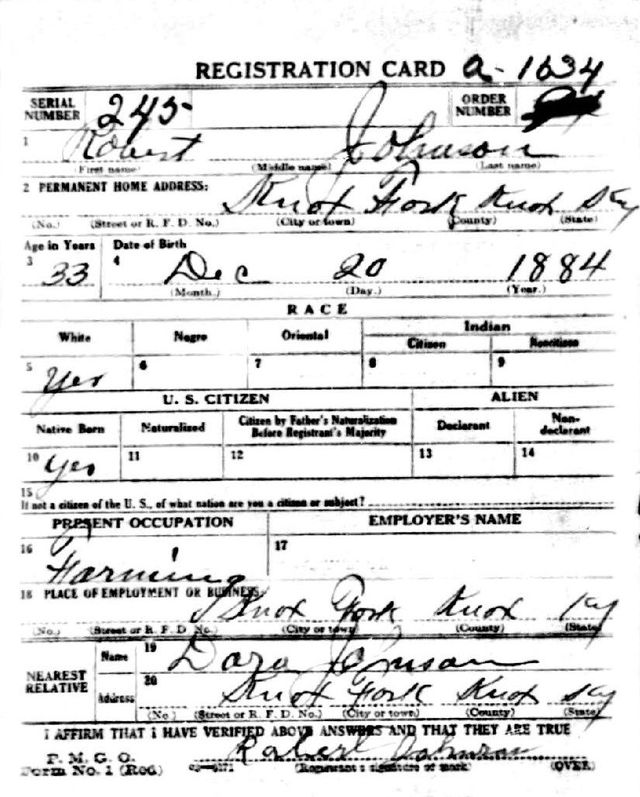 REGISTRATION CARD a-1634
SERIAL NUMBER 245 ORDER NUMBER
1 Robert Johnson
(First name) (Middle name) (Last name)
2 PERMANENT HOME ADDRESS: Knox Fork Knox Ky
(No.) (Street or R. F. D. No.) (City or town) (County) (State)
Age in Years Date of Birth
3 33 4 Dec 20 1884
(Month.) (Day.) (Year.)
RACE
White Negro Oriental Indian
Citizen Noncitizen
5 Yes 6 7 8 9
U. S. CITIZEN ALIEN
Native Born Naturalized Citizen by Father's Naturalization Before Registrant's Majority Declarant Non-declarant
10 Yes 11 12 13 14
15
If not a citizen of the U. S., of what nation are you a citizen or subject?
PRESENT OCCUPATION EMPLOYER'S NAME
16 Farming 17
18 PLACE OF EMPLOYMENT OR BUSINESS:
Knox Fork Knox Ky
(No.) (Street or R. F. D. No.) (City or town) (County) (State)
NEAREST RELATIVE Name 19 Dora Johnson
Address 20 Knox Fork Knox Ky
(No.) (Street or R. F. D. No.) (City or town) (County) (State)
I AFFIRM THAT I HAVE VERIFIED ABOVE ANSWERS AND THAT THEY ARE TRUE
P. M. G. O.
Form No. 1 (Red) Robert Johnson
(Registrant's signature or mark) (OVER)